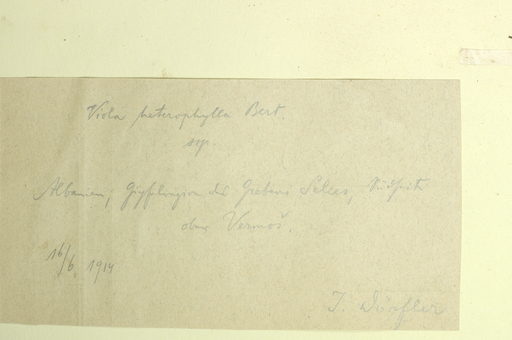 Viola heterophylla Bert.
Albanien; Gipfelregion des Greben Selces, Südseite
ober Vermoš.
16/6 1914
I. Dörfler